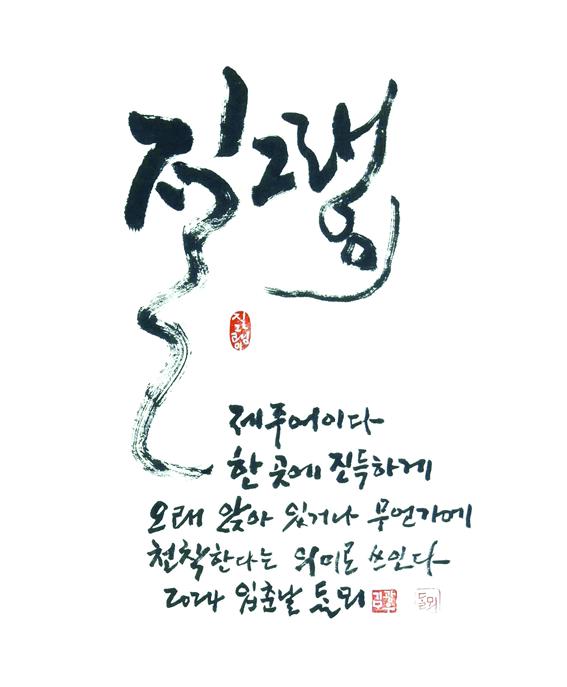 질그랭이
제주어이다
한 곳에 진득하게
오래 앉아 있거나 무언가에
천착한다는 의미로 쓰인다
2024 입춘날 돌뫼
돌뫼